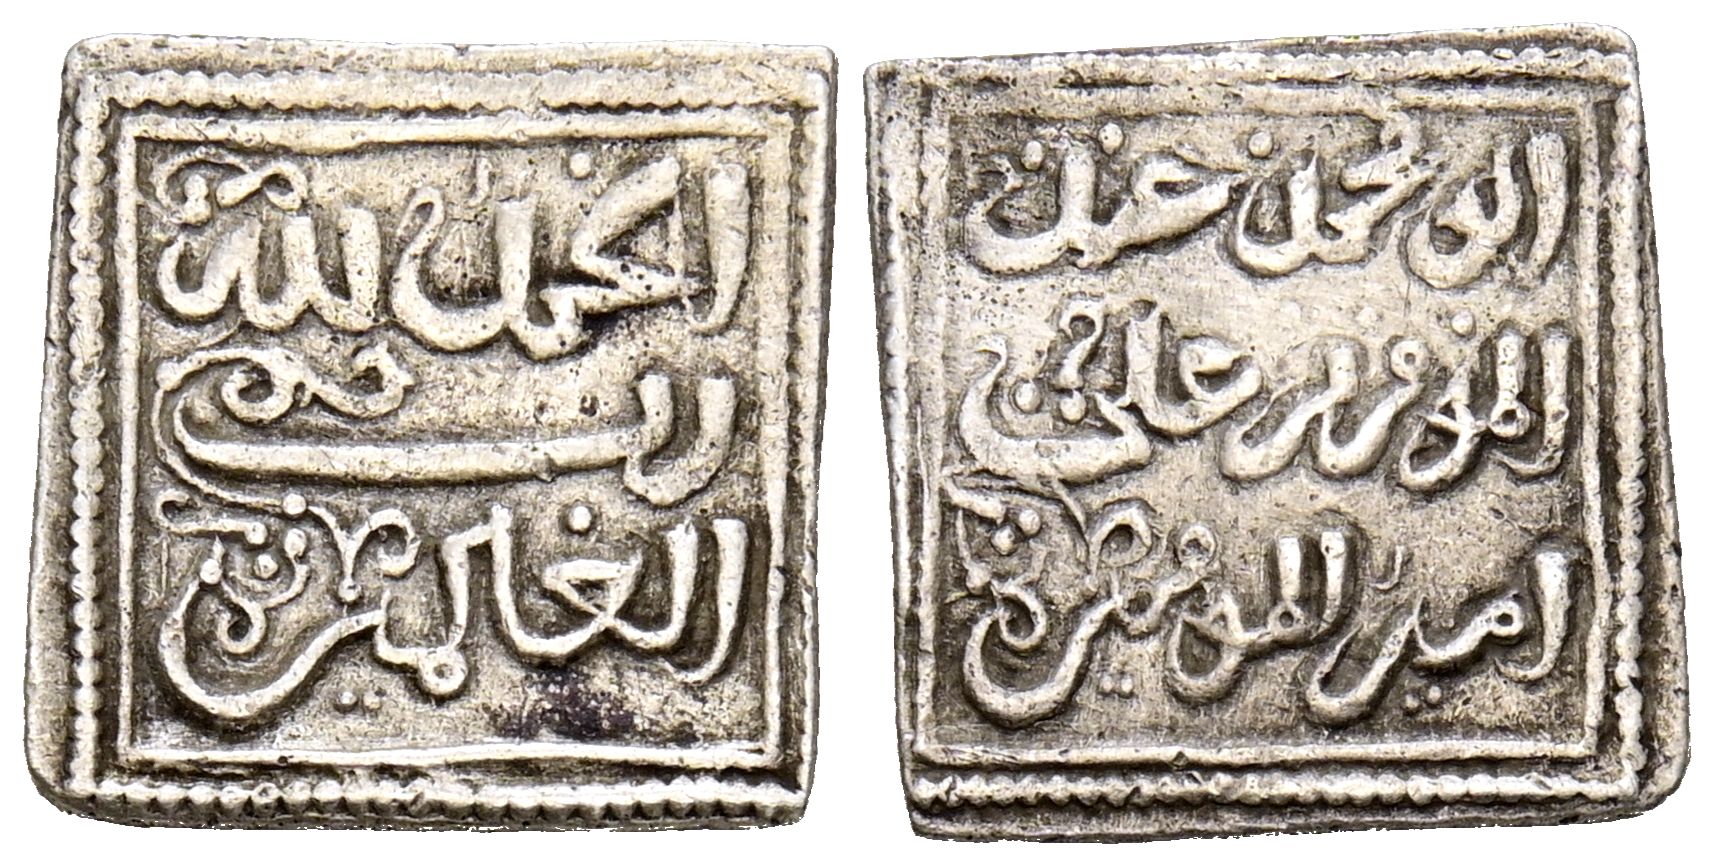 الحمد لله
رب
العالمين
ابو محمد عبد
المومن بن علي
امير المومنين